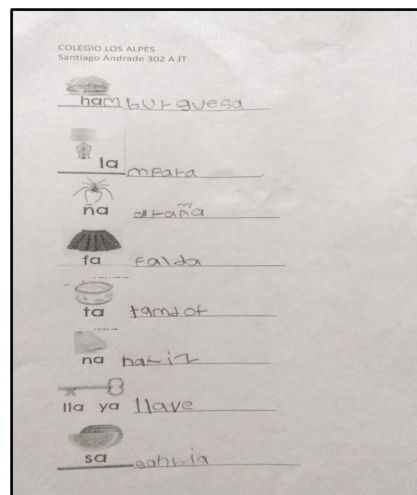 COLEGIO LOS ALPES
Santiago Andrade 302 A JT
ham burguesa
la meara
ña araña
fa falda
ta tamdor
na nariz
lla ya llave
sa sandia